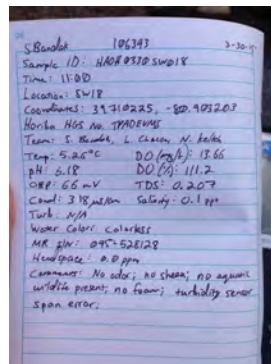 S Bandak 106393 3-30-
Sample ID: HAOR0330SW018
Time: 11:00
Location: SW18
Coordinates: 39.710225, -80.903203
Horiba HGS No. TPADEUMS
Team: S. Bandak, L. Chacon, N. Keith
Temp: 5.26°C DO (mg/L): 13.66
pH: 6.18 DO (%): 111.2
ORP: 66 mV TDS: 0.207
Cond: 318 µs/cm Salinity: 0.1 ppt
Turb: N/A
Water Color: Colorless
MR P/N: 095-528128
Headspace: 0.0 ppm
Comments: No odor; no sheen; no aquatic
wildlife present; no foam; turbidity sensor
span error;